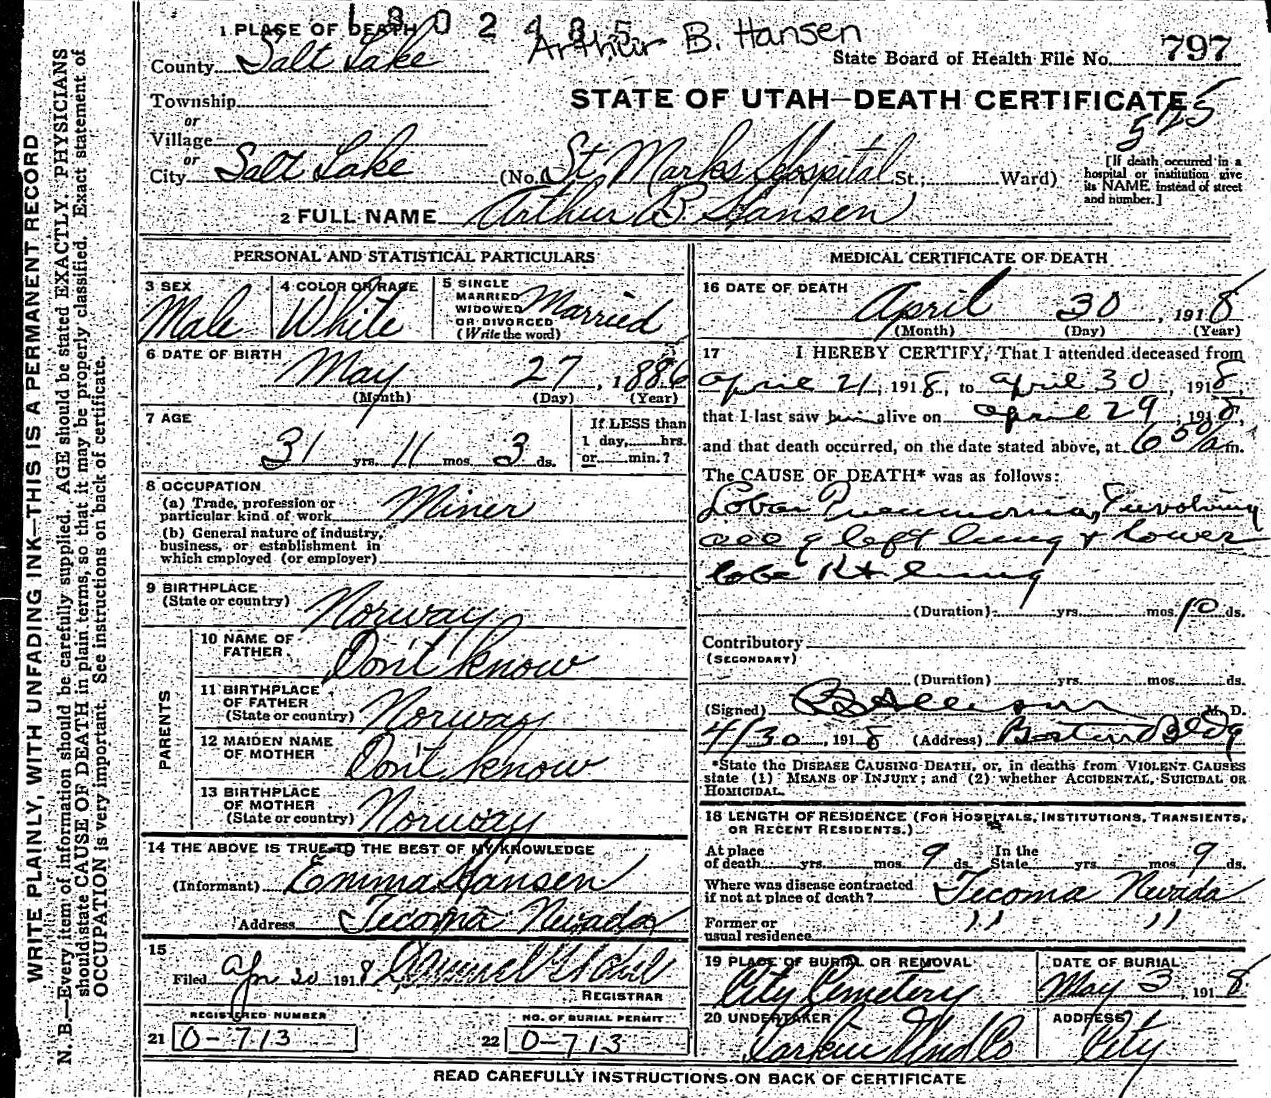 1802485
Arthur B. Hansen
1 PLACE OF DEATH
County Salt Lake
State Board of Health File No. 797
Township
or
Village
or
City Salt Lake
STATE OF UTAH—DEATH CERTIFICATE
525
(No. St. Marks Hospital St.; Ward)
[If death occurred in a hospital or institution give its NAME instead of street and number.]
2 FULL NAME Arthur B Hansen
PERSONAL AND STATISTICAL PARTICULARS
3 SEX
Male
4 COLOR OR RACE
White
5 SINGLE
MARRIED
WIDOWED
OR DIVORCED
(Write the word)
Married
6 DATE OF BIRTH
May 27, 1886
(Month) (Day) (Year)
7 AGE
31 yrs. 11 mos. 3 ds.
If LESS than
1 day, hrs.
or min.?
8 OCCUPATION
(a) Trade, profession or
particular kind of work Miner
(b) General nature of industry,
business, or establishment in
which employed (or employer)
9 BIRTHPLACE
(State or country) Norway
PARENTS
10 NAME OF
FATHER Don't know
11 BIRTHPLACE
OF FATHER
(State or country) Norway
12 MAIDEN NAME
OF MOTHER Don't know
13 BIRTHPLACE
OF MOTHER
(State or country) Norway
14 THE ABOVE IS TRUE TO THE BEST OF MY KNOWLEDGE
(Informant) Emma Hansen
Address Tecoma Nevada
15
Filed Apr 30 1918
REGISTRAR
REGISTERED NUMBER
21 0-713
NO. OF BURIAL PERMIT
22 0-713
MEDICAL CERTIFICATE OF DEATH
16 DATE OF DEATH
April 30, 1918
(Month) (Day) (Year)
17 I HEREBY CERTIFY, That I attended deceased from
april 21, 1918, to april 30, 1918,
that I last saw him alive on april 29, 1918,
and that death occurred, on the date stated above, at 6 50/a m.
The CAUSE OF DEATH* was as follows:
Lobar Pneumonia, Involving
all of left lung & lower
lobe Rt lung
(Duration) yrs. mos. 10 ds.
Contributory
(SECONDARY)
(Duration) yrs. mos. ds.
(Signed) M. D.
4/30, 1918 (Address) Boston Bldg
*State the DISEASE CAUSING DEATH, or, in deaths from VIOLENT CAUSES
state (1) MEANS OF INJURY; and (2) whether ACCIDENTAL, SUICIDAL OR
HOMICIDAL.
18 LENGTH OF RESIDENCE (FOR HOSPITALS, INSTITUTIONS, TRANSIENTS,
OR RECENT RESIDENTS.)
At place
of death yrs. mos. 9 ds. In the
State yrs. mos. 9 ds.
Where was disease contracted
if not at place of death? Tecoma Nevada
Former or
usual residence " "
19 PLACE OF BURIAL OR REMOVAL
City Cemetery
DATE OF BURIAL
May 3, 1918
20 UNDERTAKER
Larkin Und Co
ADDRESS
City
READ CAREFULLY INSTRUCTIONS ON BACK OF CERTIFICATE
WRITE PLAINLY, WITH UNFADING INK—THIS IS A PERMANENT RECORD
N. B.—Every item of information should be carefully supplied. AGE should be stated EXACTLY. PHYSICIANS
should state CAUSE OF DEATH in plain terms, so that it may be properly classified. Exact statement of
OCCUPATION is very important. See instructions on back of certificate.